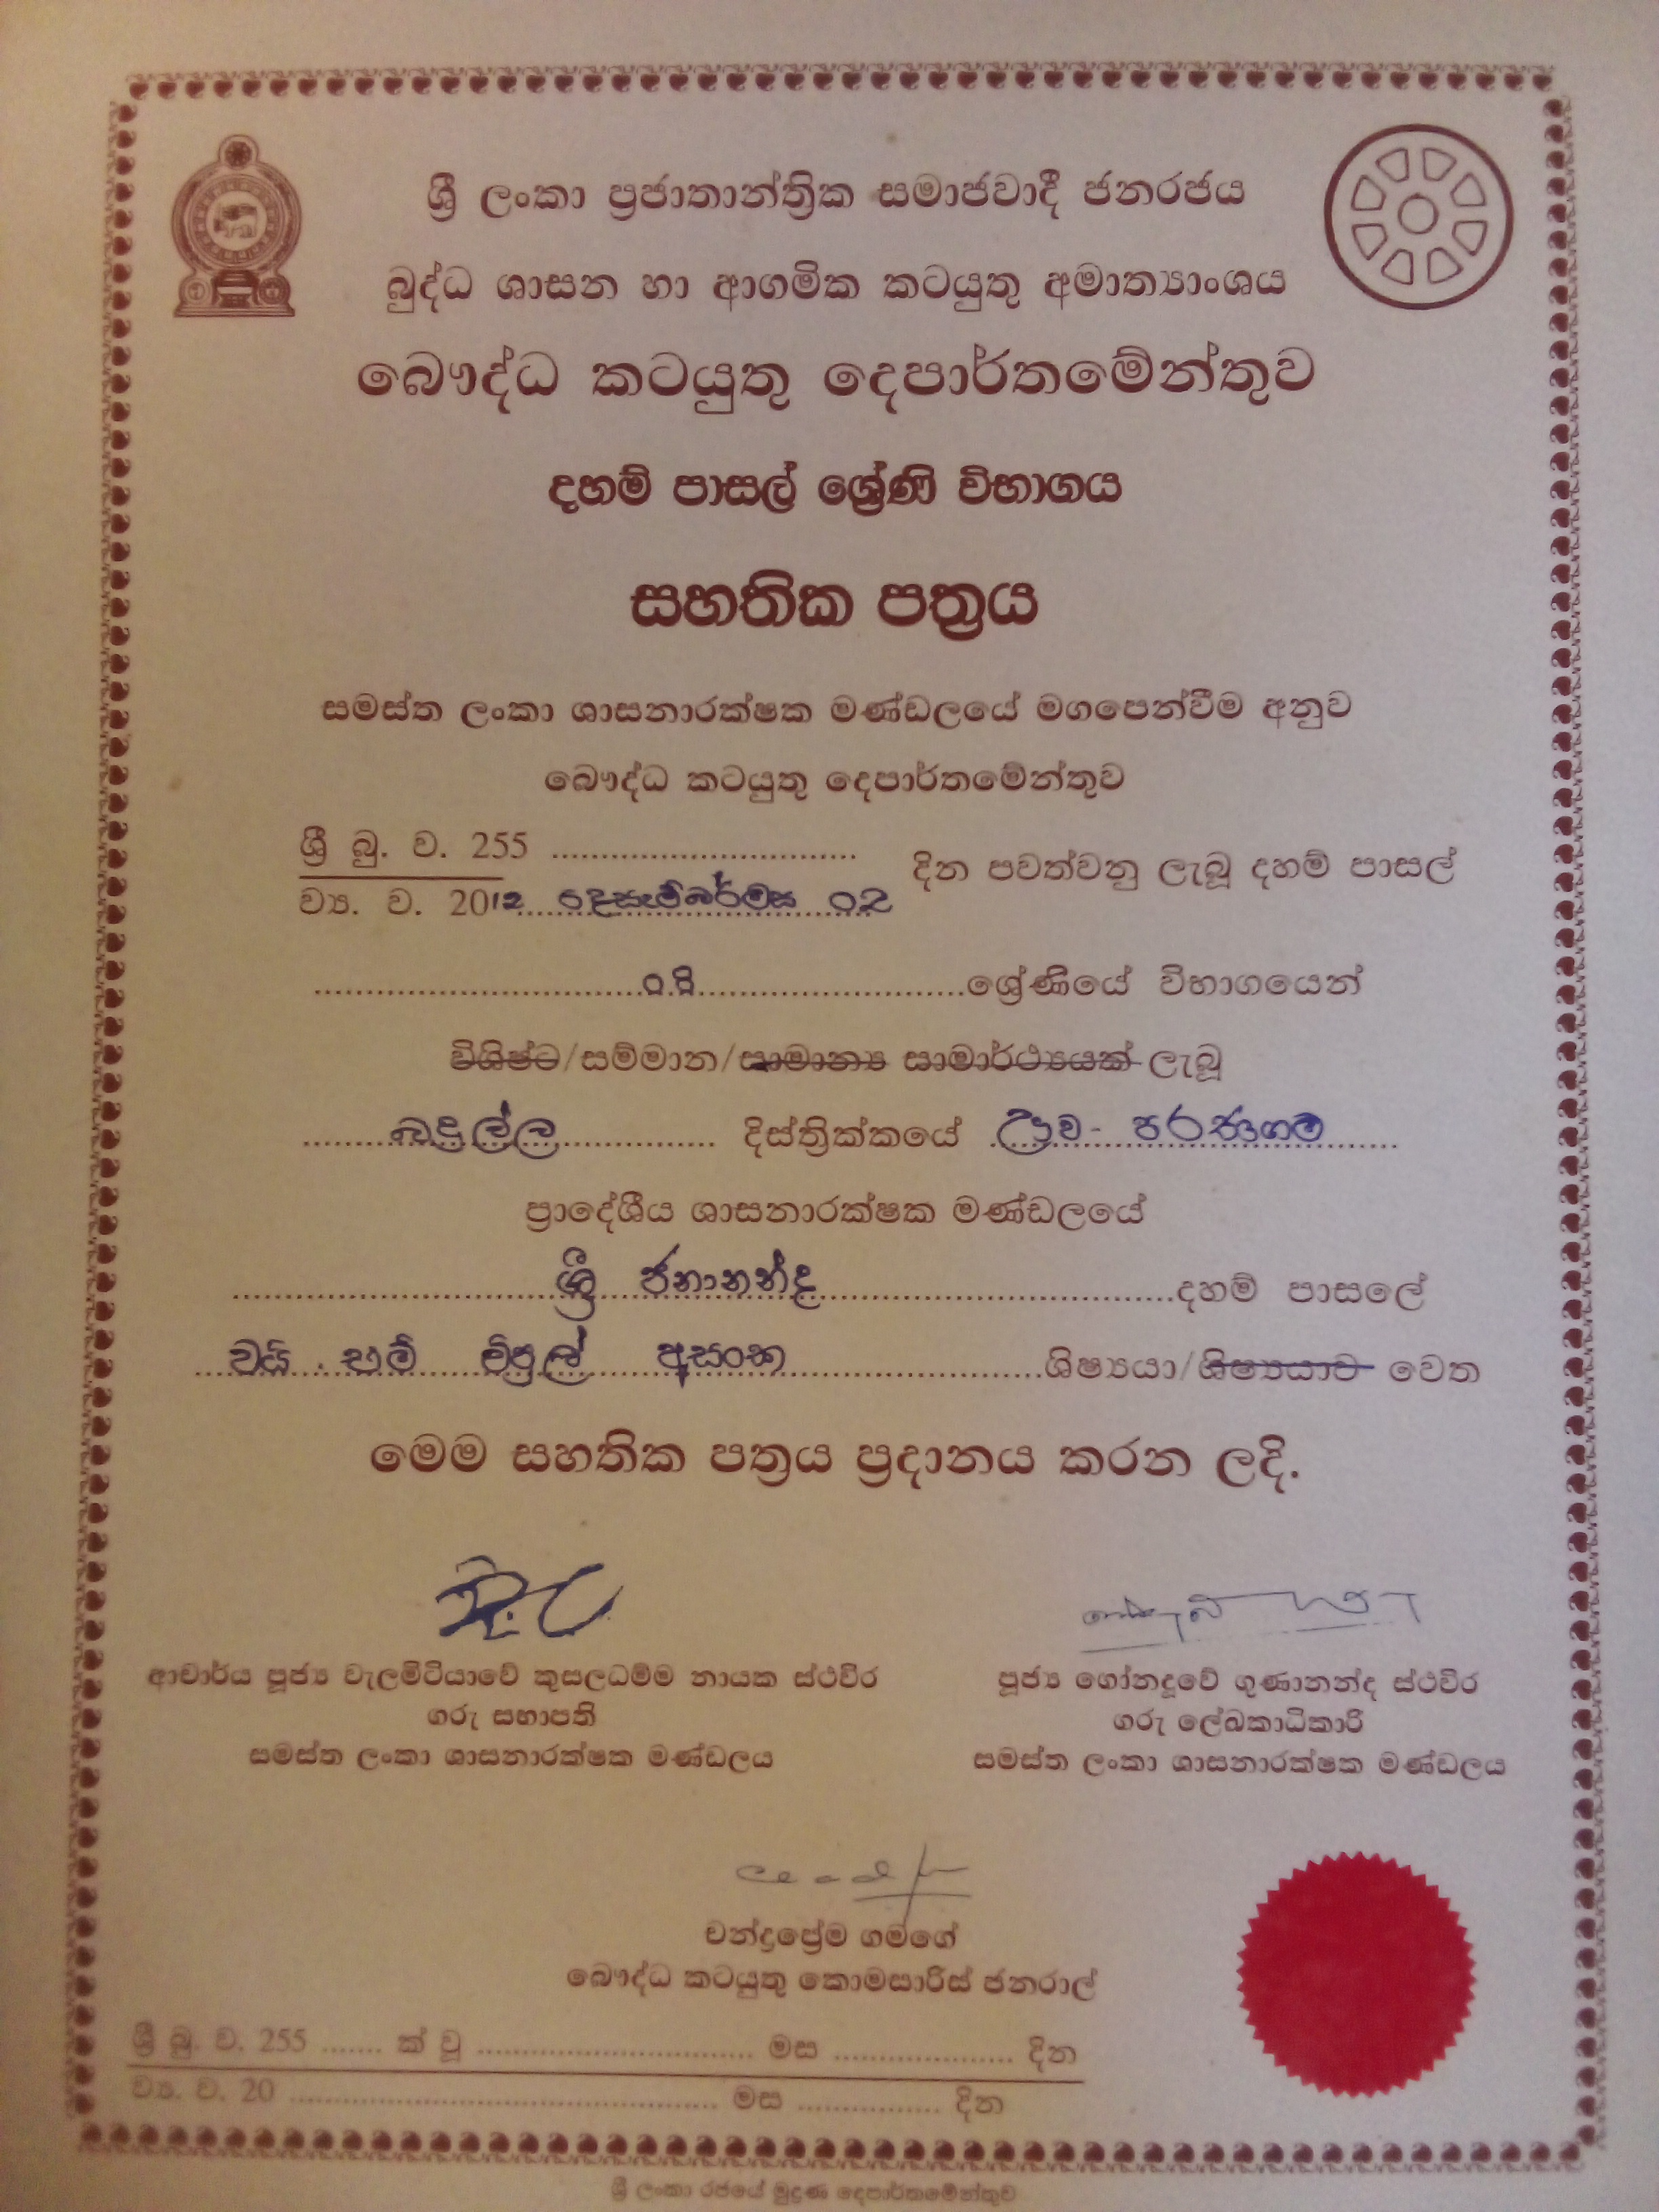 ශ්‍රී ලංකා ප්‍රජාතාන්ත්‍රික සමාජවාදී ජනරජය
බුද්ධ ශාසන හා ආගමික කටයුතු අමාත්‍යාංශය
බෞද්ධ කටයුතු දෙපාර්තමේන්තුව
දහම් පාසල් ශ්‍රේණි විභාගය
සහතික පත්‍රය
සමස්ත ලංකා ශාසනාරක්ෂක මණ්ඩලයේ මගපෙන්වීම අනුව
බෞද්ධ කටයුතු දෙපාර්තමේන්තුව
ශ්‍රී බු. ව. 255 ..............................
ව්‍ය. ව. 2012 දෙසැම්බර්මස 02 දින පවත්වනු ලැබූ දහම් පාසල්
ශ්‍රේණියේ විභාගයෙන්
විශිෂ්ට/සම්මාන/සාමාන්‍ය සාමාර්ථ්‍යයක් ලැබූ
බදුල්ල දිස්ත්‍රික්කයේ ඌව - පරණගම
ප්‍රාදේශීය ශාසනාරක්ෂක මණ්ඩලයේ
ශ්‍රී ජනානන්ද දහම් පාසලේ
වයි. එම් විපුල් අසංක ශිෂ්‍යයා/ශිෂ්‍යයාව වෙත
මෙම සහතික පත්‍රය ප්‍රදානය කරන ලදි.
ආචාර්ය පූජ්‍ය වැලමිටියාවේ කුසලධම්ම නායක ස්ථවිර
ගරු සභාපති
සමස්ත ලංකා ශාසනාරක්ෂක මණ්ඩලය
පූජ්‍ය ගෝනදූවේ ගුණානන්ද ස්ථවිර
ගරු ලේඛකාධිකාරී
සමස්ත ලංකා ශාසනාරක්ෂක මණ්ඩලය
චන්ද්‍රප්‍රේම ගමගේ
බෞද්ධ කටයුතු කොමසාරිස් ජනරාල්
ශ්‍රී බු. ව. 255 ....... ක් වූ .............................. මස .................... දින
ව්‍ය. ව. 20 ................................................ මස ................ දින
ශ්‍රී ලංකා රජයේ මුද්‍රණ දෙපාර්තමේන්තුව